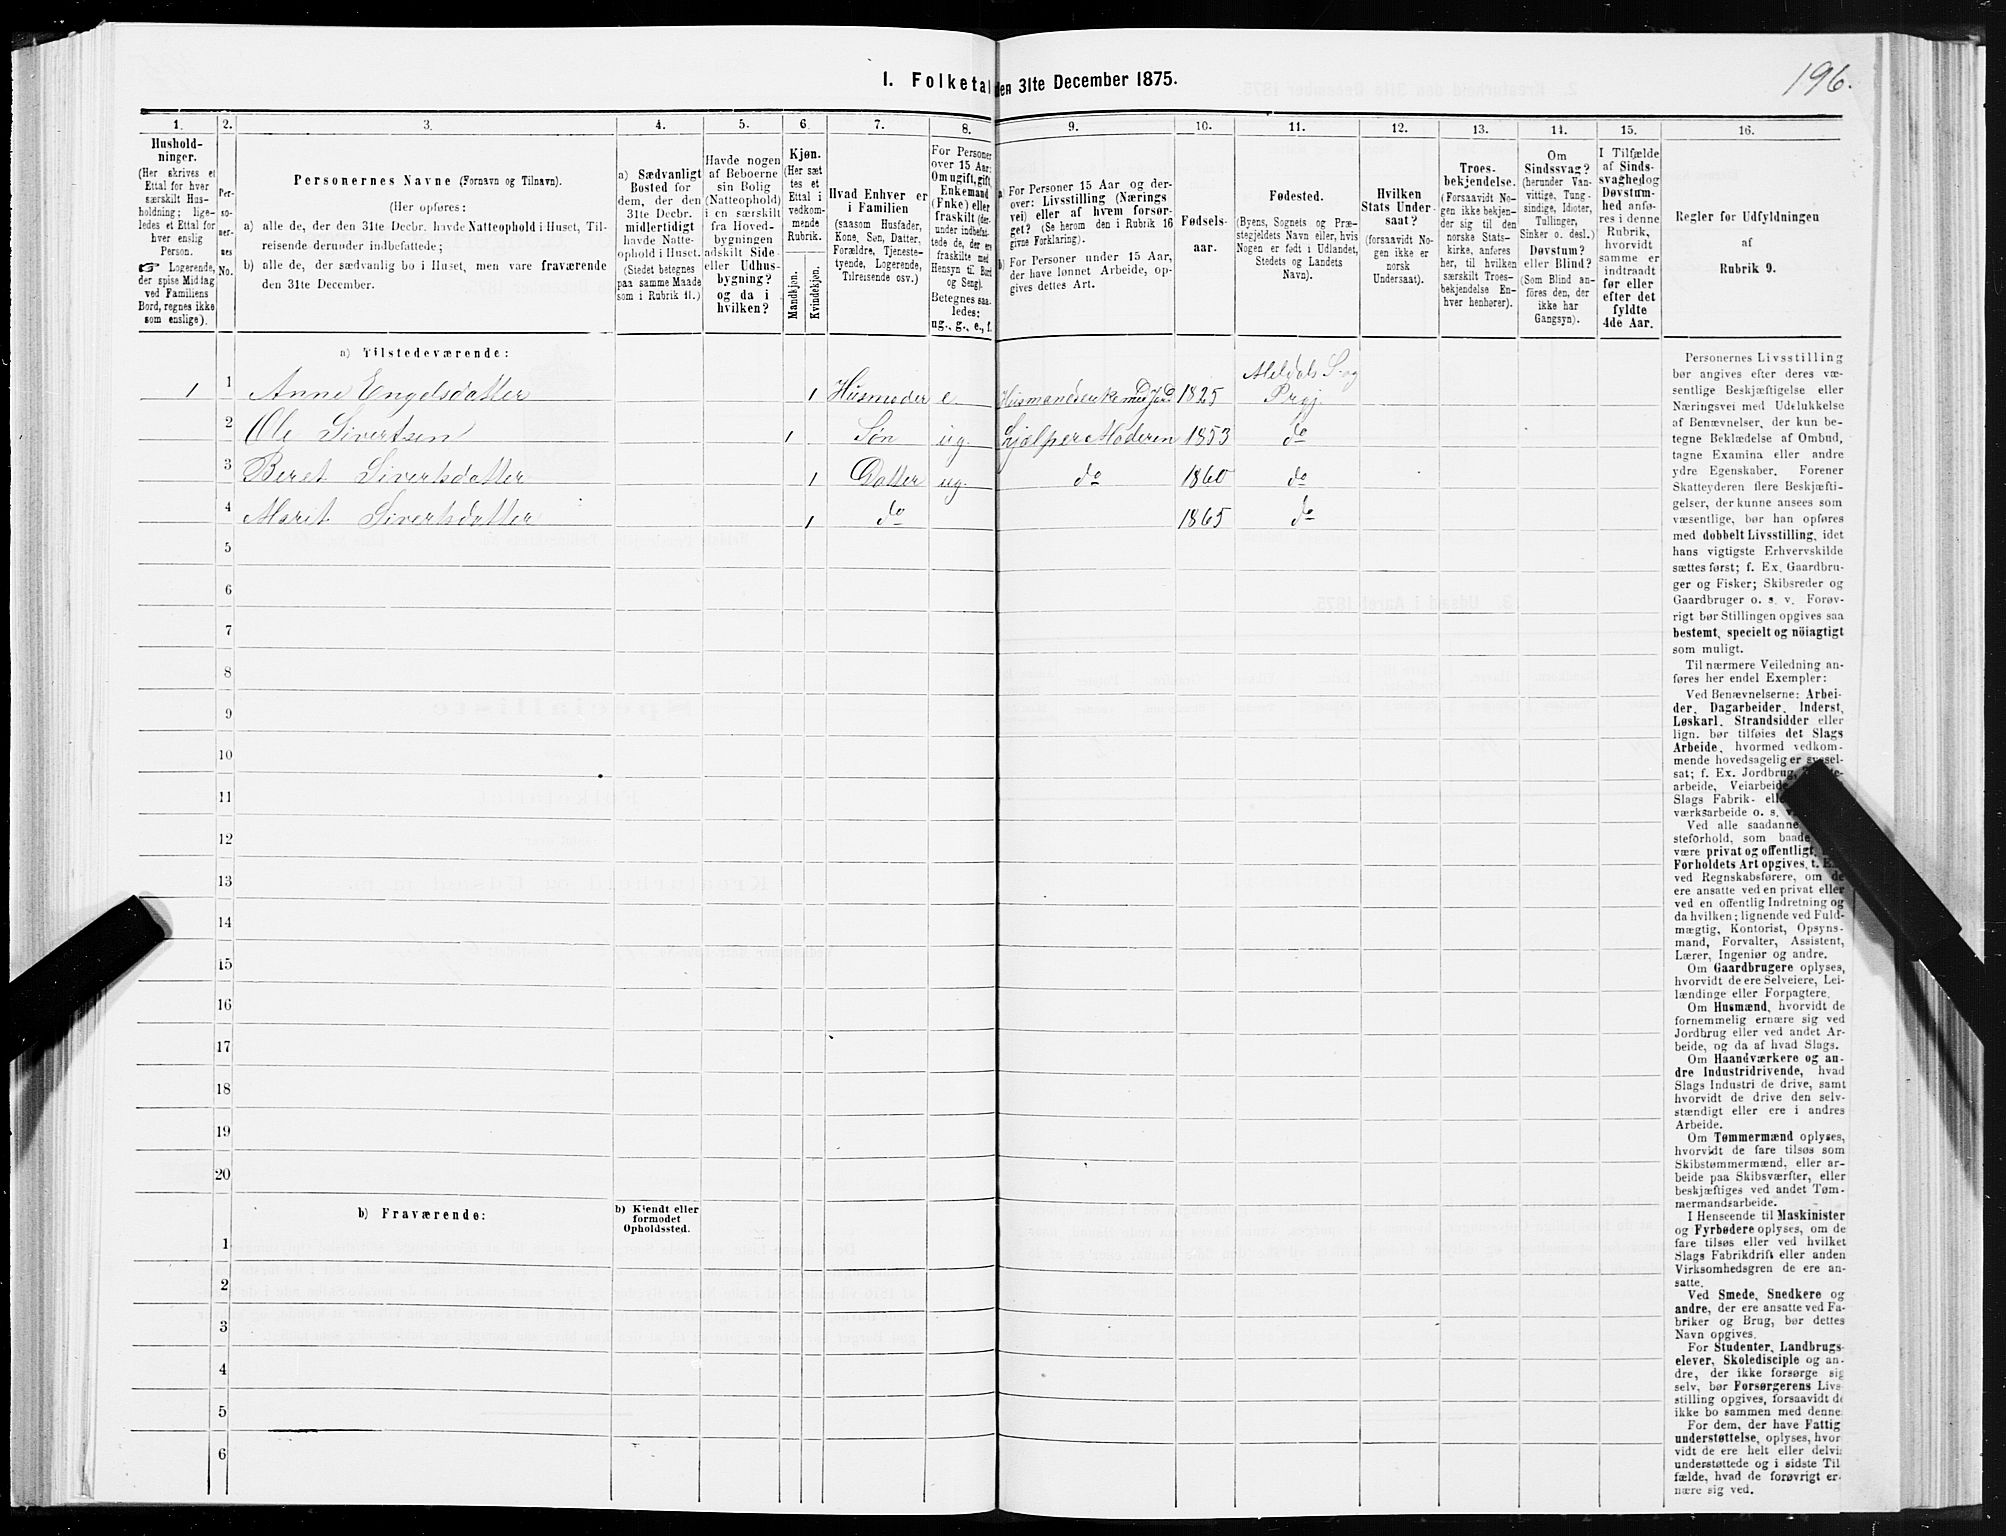 196.
I. Folketal den 31te December 1875.
1. 2. 3. 4. 5. 6. 7. 8. 9. 10. 11. 12. 13. 14. 15. 16.
Hushold-
ninger.
(Her skrives et
Ettal for hver
særskilt Hus-
holdning; lige-
ledes et Ettal for
hver enslig
Person.
☞ Logerende,
der spise Middag
ved Familiens
Bord, regnes ikke
som enslige).
Per-
so-
ner-
nes
No.
Personernes Navne (Fornavn og Tilnavn).
(Her opføres:
a) alle de, der den 31te Decbr. havde Natteophold i Huset, Til-
reisende derunder indbefattede;
b) alle de, der sædvanlig bo i Huset, men vare fraværende
den 31te December.
a) Sædvanligt
Bosted for
dem, der den
31te Decbr.
midlertidigt
havde Natte-
ophold i Huset.
(Stedet betegnes
paa samme Maade
som i Rubrik 11.)
Havde nogen
af Beboerne
sin Bolig
(Natteophold)
i en særskilt
fra Hoved-
bygningen
adskilt Side-
eller Udhus-
bygning?
og da i
hvilken?
Kjøn.
(Her sæt
tes et
Ettal i
vedkom-
mende
Rubrik.
Mandkjøn.
Kvindekjøn.
Hvad Enhver er
i Familien
(saasom Husfader,
Kone, Søn, Datter,
Forældre, Tjeneste-
tyende, Logerende,
Tilreisende osv.)
For Personer
over 15 Aar:
Om ugift, gift,
Enkemand
(Enke) eller
fraskilt (der-
under indbefat-
tede de, der ere
fraskilte med
Hensyn til Bord
og Seng).
Betegnes saa-
ledes:
ug., g., e., f.
a) For Personer 15 Aar og der-
over: Livsstilling (Nærings
vei) eller af hvem forsør-
get? (Se herom den i Rubrik 16
givne Forklaring).
b) For Personer under 15 Aar,
der have lønnet Arbeide, op-
gives dettes Art.
Fødsels-
aar.
Fødested.
(Byens, Sognets og Præ-
stegjeldets Navn eller, hvis
Nogen er født i Udlandet,
Stedets og Landets
Navn).
Hvilken
Stats Under-
saat?
(forsaavidt No-
gen ikke er
norsk
Undersaat).
Troes-
bekjendelse.
(Forsaavidt No-
gen ikke bekjen-
der sig til den
norske Stats-
kirke, anføres
her, til hvilken
særskilt Troes-
bekjendelse En-
hver henhører).
Om
Sindssvag?
(herunder Van-
vittige, Tung-
sindige, Idioter,
Tullinger,
Sinker o. desl.)
Døvstum?
eller Blind?
(Som Blind an-
føres den, der
ikke har
Gangsyn).
I Tilfælde
af Sinds-
svaghed og
Døvstum-
hed anfø-
res i denne
Rubrik,
hvorvidt
samme er
indtraadt
før eller
efter det
fyldte
4de Aar.
Regler for Udfyldningen
af
Rubrik 9.
a) Tilstedeværende:
1 1 Anne Engelsdatter 1 Husmoder e. Husmandsenke med Jord 1825 Meldals S. og Prgj.
2 Ole Sivertsen 1 Søn ug. Hjælper Moderen 1853 do
3 Beret Sivertsdatter 1 Datter ug. do 1860 do
4 Maret Sivertsdatter 1 do 1865 do
5
6
7
8
9
10
11
12
13
14
15
16
17
18
19
20
b) Fraværende:
b) Kjendt eller
formodet
Opholdssted.
1
2
3
4
5
6
Personernes Livsstilling
bør angives efter deres væ-
sentlige Beskjæftigelse eller
Næringsvei med Udelukkelse
af Benævnelser, der kun be-
tegne Beklædelse af Ombud,
tagne Examina eller andre
ydre Egenskaber. Forener
Skatteyderen flere Beskjæfti-
gelser, der kunne ansees som
væsentlige, bør han opføres
med dobbelt Livsstilling, idet
hans vigtigste Erhvervskilde
sættes først; f. Ex. Gaardbru-
ger og Fisker; Skibsreder og
Gaardbruger o. s. v. Forøv-
rigt bør Stillingen opgives saa
bestemt, specielt og nöiagtigt
som muligt.
Til nærmere Veiledning an-
føres her endel Exempler:
Ved Benævnelserne: Arbei-
der, Dagarbeider, Inderst,
Løskarl, Strandsidder eller
lign. bør tilføies det Slags
Arbeide, hvormed vedkom-
mende hovedsagelig er syssel-
sat; f. Ex. Jordbrug,
arbeide, Veiarbeide,
Slags Fabrik-
værksarbeide o. s. v.
Ved alle saadanne
steforhold, som baade
være privat og offentligt,
Forholdets Art opgives, t. Ex.
ved Regnskabsførere, om de
ere ansatte ved en privat eller
ved en offentlig Indretning og
da hvilken; lignende ved Fuld-
mægtig, Kontorist, Opsyns-
mand, Forvalter, Assistent,
Lærer, Ingeniør og andre.
Om Gaardbrugere oplyses,
hvorvidt de ere Selveiere, Lei-
lændinge eller Forpagtere.
Om Husmænd, hvorvidt de
fornemmelig ernære sig ved
Jordbrug eller ved andet Ar-
beide, og da af hvad Slags.
Om Haandværkere og an-
dre Industridrivende, hvad
Slags Industri de drive, samt
hvorvidt de drive den selv-
stændigt eller ere i andres
Arbeide.
Om Tømmermænd oplyses,
hvorvidt de fare tilsøs som
Skibstømmermænd, eller ar-
beide paa Skibsværfter, eller
beskjæftiges ved andet Tøm-
mermandsarbeide.
I Henseende til Maskinister
og Fyrbødere oplyses, om de
fare tilsøs eller ved hvilket
Slags Fabrikdrift eller anden
Virksomhedsgren de ere an-
satte.
Ved Smede, Snedkere og
andre, der ere ansatte ved Fa-
briker og Brug, bør dettes
Navn opgives.
For Studenter, Landbrugs-
elever, Skoledisciple og an-
dre, der ikke forsørge sig
selv, bør Forsørgerens Livs-
stilling opgives, forsaavidt de
ikke bo sammen med denne
For dem, der have Fattig
understøttelse, oplyses, hvor
vidt de ere helt eller delvis
understøttede og i sidste Til
fælde, hvad de forøvrigt er-
nære sig ved.